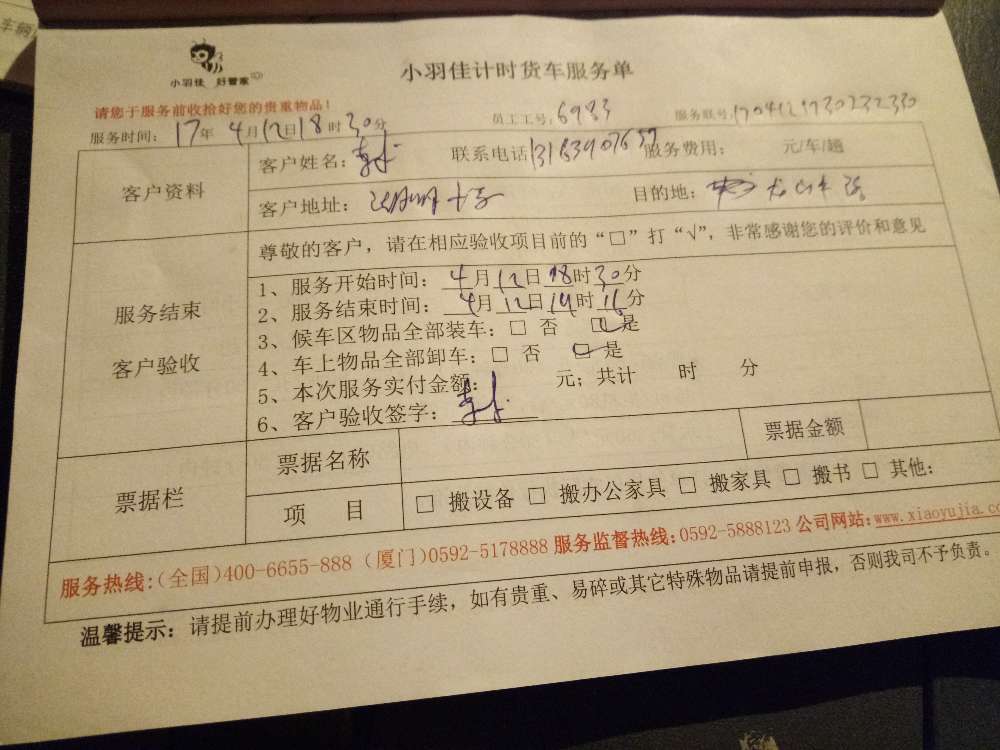 小羽佳 好管家
小羽佳计时货车服务单
请您于服务前收拾好您的贵重物品！
服务时间：17年4月12日18时30分 员工工号：6983 服务联号：
客户资料
客户姓名： 联系电话 服务费用： 元/车/趟
客户地址： 目的地：
服务结束
客户验收
尊敬的客户，请在相应验收项目前的“□”打“√”，非常感谢您的评价和意见
1、服务开始时间：4月12日18时30分
2、服务结束时间：4月12日19时16分
3、候车区物品全部装车：□ 否 □ 是
4、车上物品全部卸车：□ 否 □ 是
5、本次服务实付金额： 元；共计 时 分
6、客户验收签字：
票据栏
票据名称
票据金额
项 目
□ 搬设备 □ 搬办公家具 □ 搬家具 □ 搬书 □ 其他：
服务热线：（全国）400-6655-888（厦门）0592-5178888 服务监督热线：0592-5888123 公司网站：www.xiaoyujia.co
温馨提示：请提前办理好物业通行手续，如有贵重、易碎或其它特殊物品请提前申报，否则我司不予负责。